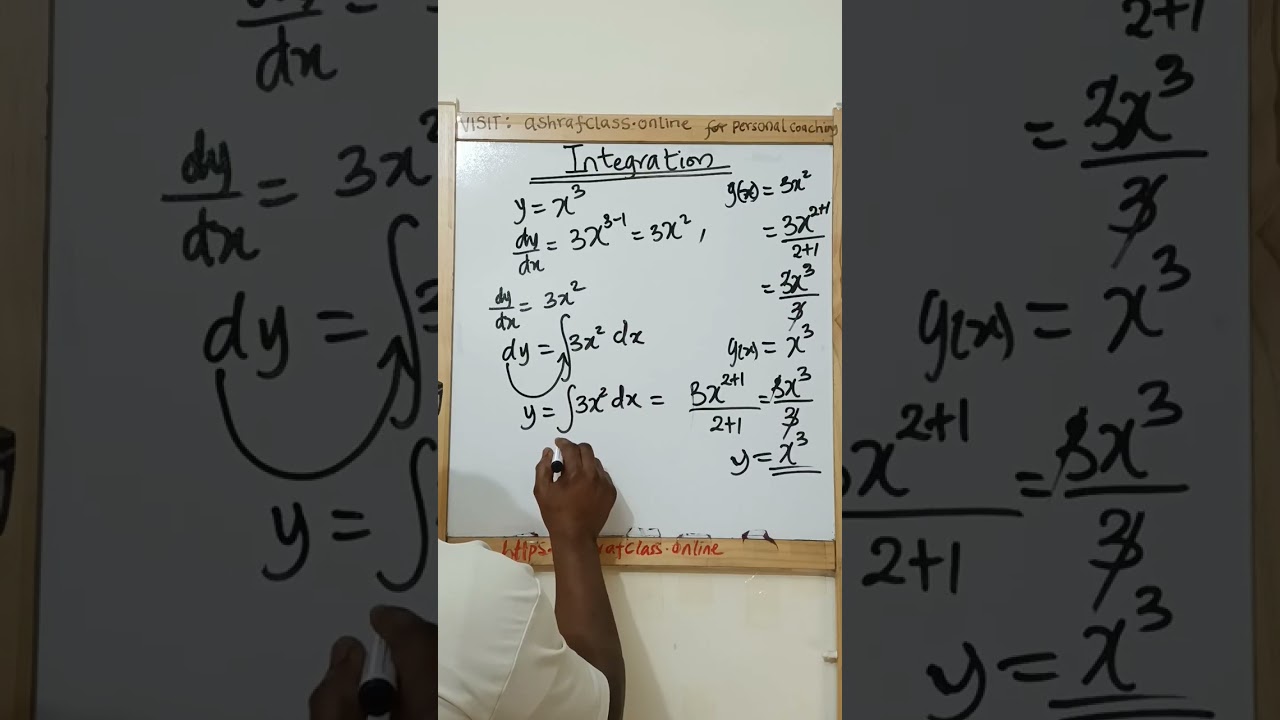 VISIT: ashrafclass.online for personal coaching
Integration
y = x³
dy/dx = 3x³⁻¹ = 3x²,
dy/dx = 3x²
dy = ∫3x² dx
y = ∫3x² dx = 3x²⁺¹/2+1 = 3x³/3
y = x³
g(x) = 3x²
= 3x²⁺¹/2+1
= 3x³/3
g(x) = x³
https
afclass.online